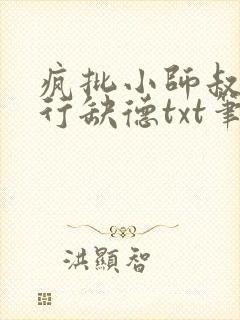 疯批小師叔
行缺德txt筆
洪顯智